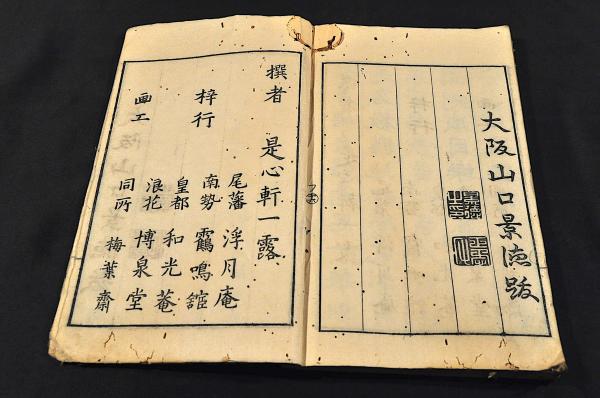 大阪山口景德跋
撰者 是心軒一露
尾藩 浮月庵
梓行 南勢 鸖鳴舘
皇都 和光菴
画工 浪花 博泉堂
同所 梅葉齋